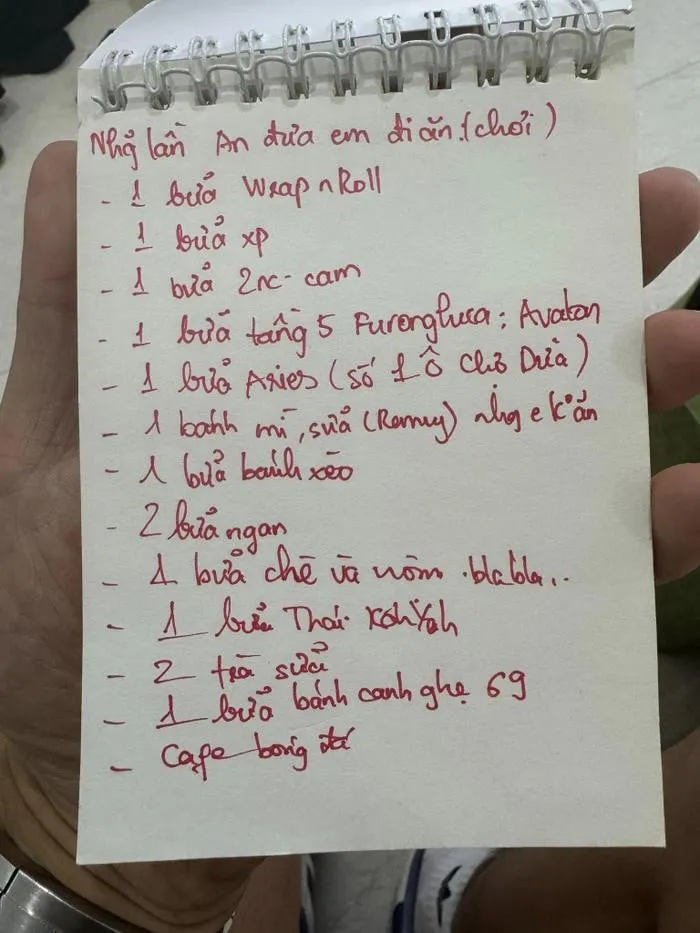 Nhg lần An đưa em đi ăn.(chơi)
- 1 bữa Wrap n Roll
- 1 bữa xp
- 1 bữa 2nc-cam
- 1 bữa tầng 5 : Avalon
- 1 bữa Aries (số 1 Ô Chợ Dừa)
- 1 bánh mì, sữa (Remmy) nhg e k ăn
- 1 bữa bánh xèo
- 2 bữa ngan
- 1 bữa chè và nộm .blabla..
- 1 bữa Thái KohYah
- 2 trà sữa
- 1 bữa bánh canh ghẹ 69
- Cafe bóng đá